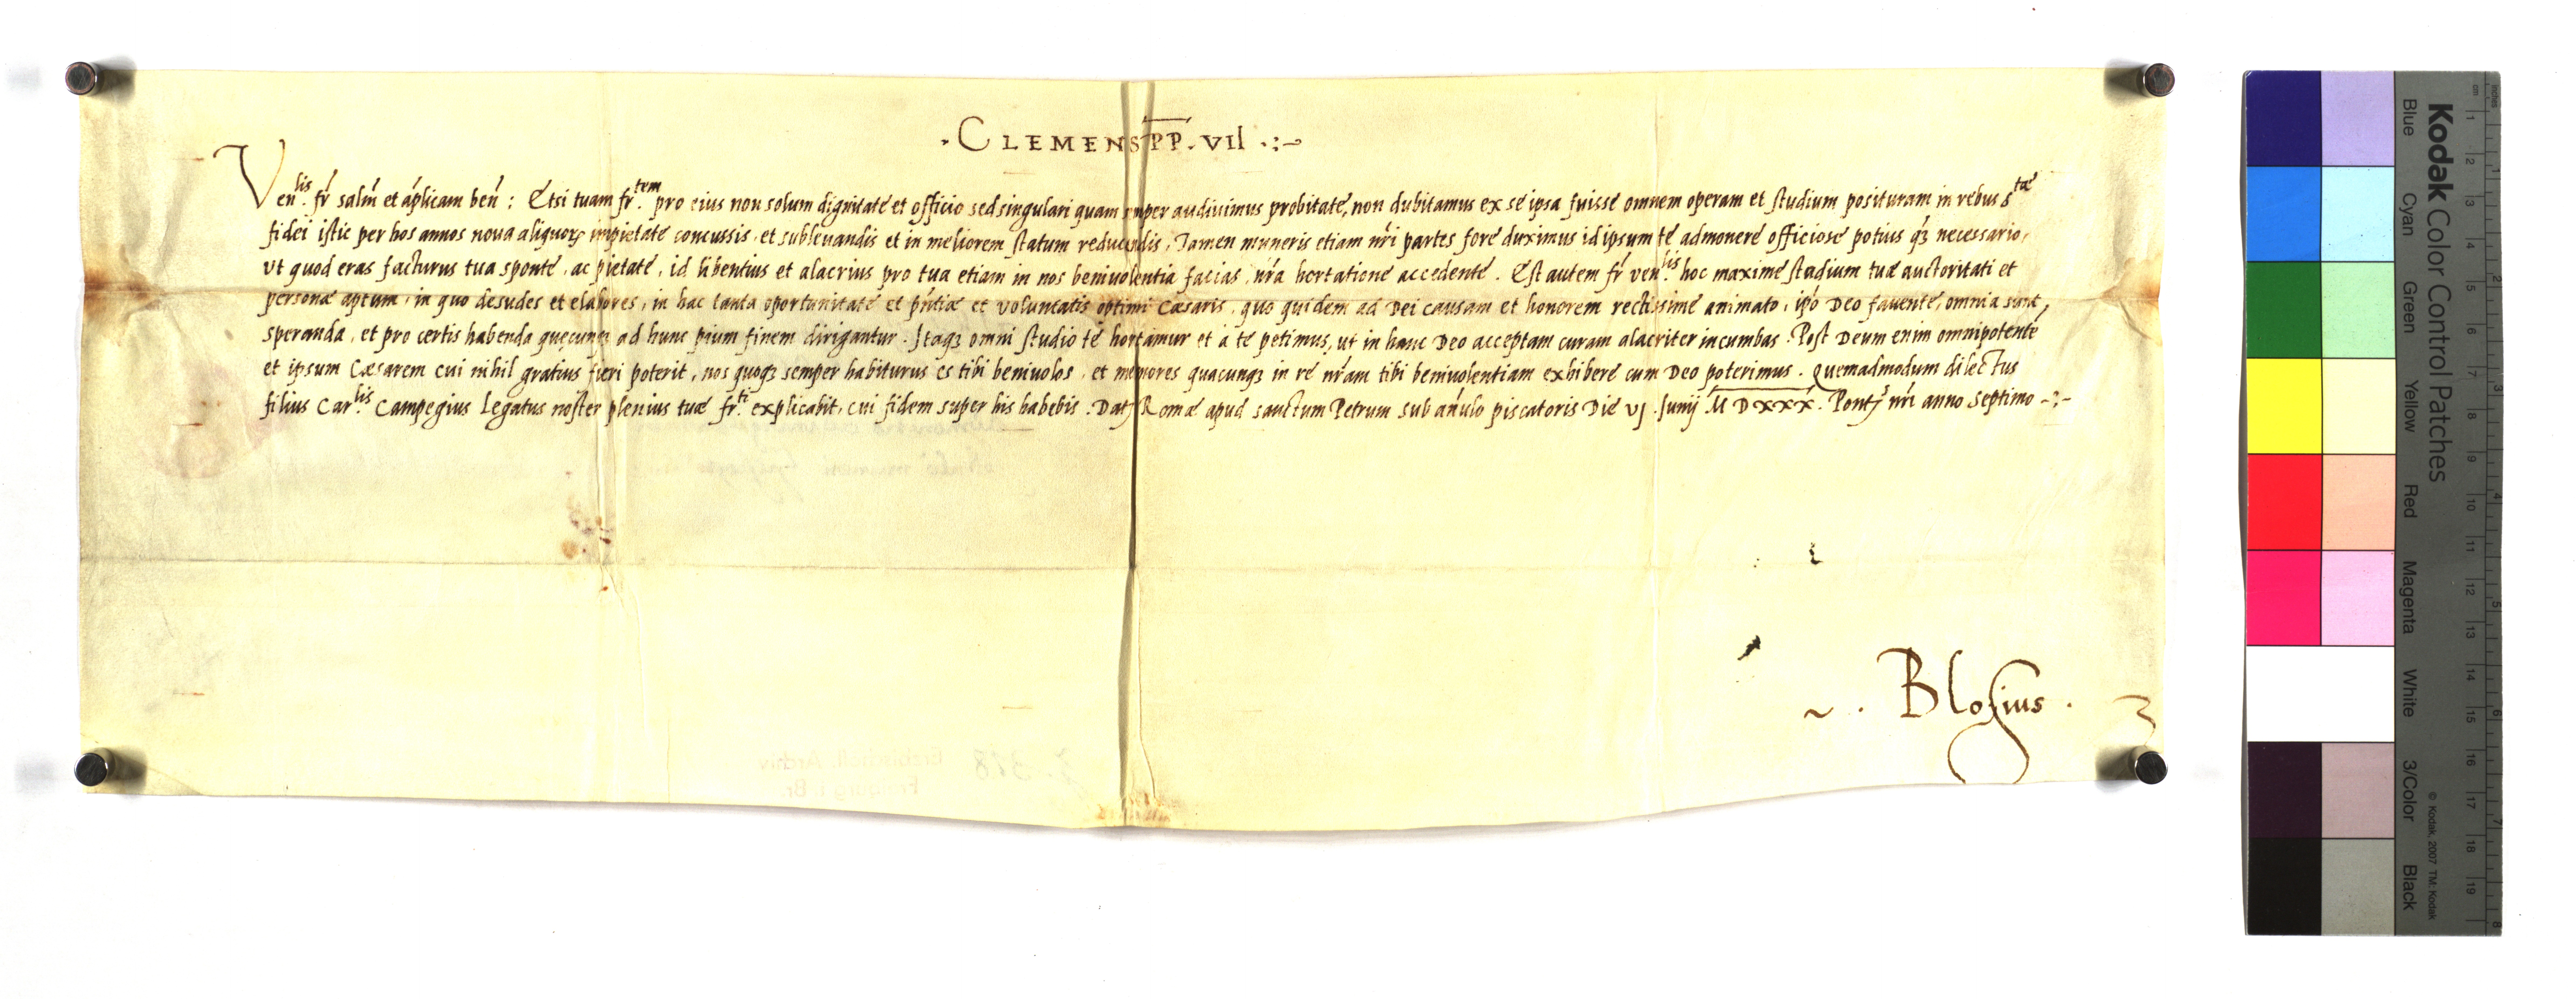 . CLEMENS PP. VII .:~
Ven.lis fr̃ salm̃ et aplicam beñ : Etsi tuam fr.tem pro eius non solum dignitate et officio sed singulari quam semper audiuimus probitate, non dubitamus ex se ipsa fuisse omnem operam et studium posituram in rebus s.tæ
fidei istic per hos annos noua aliquorꝝ impietate concussis, et subleuandis et in meliorem statum reducendis, Tamen muneris etiam nr̃i partes fore duximus id ipsum te admonere officiose potius qꝫ necessario,
ut quod eras facturus tua sponte, ac pietate, id libentius et alacrius pro tua etiam in nos beniuolentia facias, nr̃a hortatione accedente. Est autem fr̃ ven.lis hoc maxime studium tuæ auctoritati et
personæ aptum, in quo desudes et elabores, in hac tanta oportunitate et pñtiæ et voluntatis optimi Cæsaris, quo quidem ad Dei causam et honorem rectissime animato, ip̃o Deo fauente, omnia sunt
speranda, et pro certis habenda quęcunqꝫ ad hunc pium finem dirigantur. Itaqꝫ omni studio te hortamur et a te petimus, ut in hanc Deo acceptam curam alacriter incumbas. Post Deum enim omnipotente
et ipsum Cæsarem cui nihil gratius fieri poterit, nos quoqꝫ semper habiturus es tibi beniuolos, et memores quacunqꝫ in re nr̃am tibi beniuolentiam exhibere cum Deo poterimus. Quemadmodum dilectus
filius Car.lis Campegius Legatus noster plenius tuæ fr.ti explicabit, cui fidem super his habebis. Dat̃ Romæ apud sanctum Petrum sub añulo piscatoris Die vj Junij M D XXX. Pont̃ nr̃i anno septimo -:-
Blosius .
Kodak Color Control Patches
Blue Cyan Green Yellow Red Magenta White 3/Color Black
© Kodak, 2007 TM: Kodak
cm 1 2 3 4 5 6 7 8 9 10 11 12 13 14 15 16 17 18 19
inches 1 2 3 4 5 6 7 8